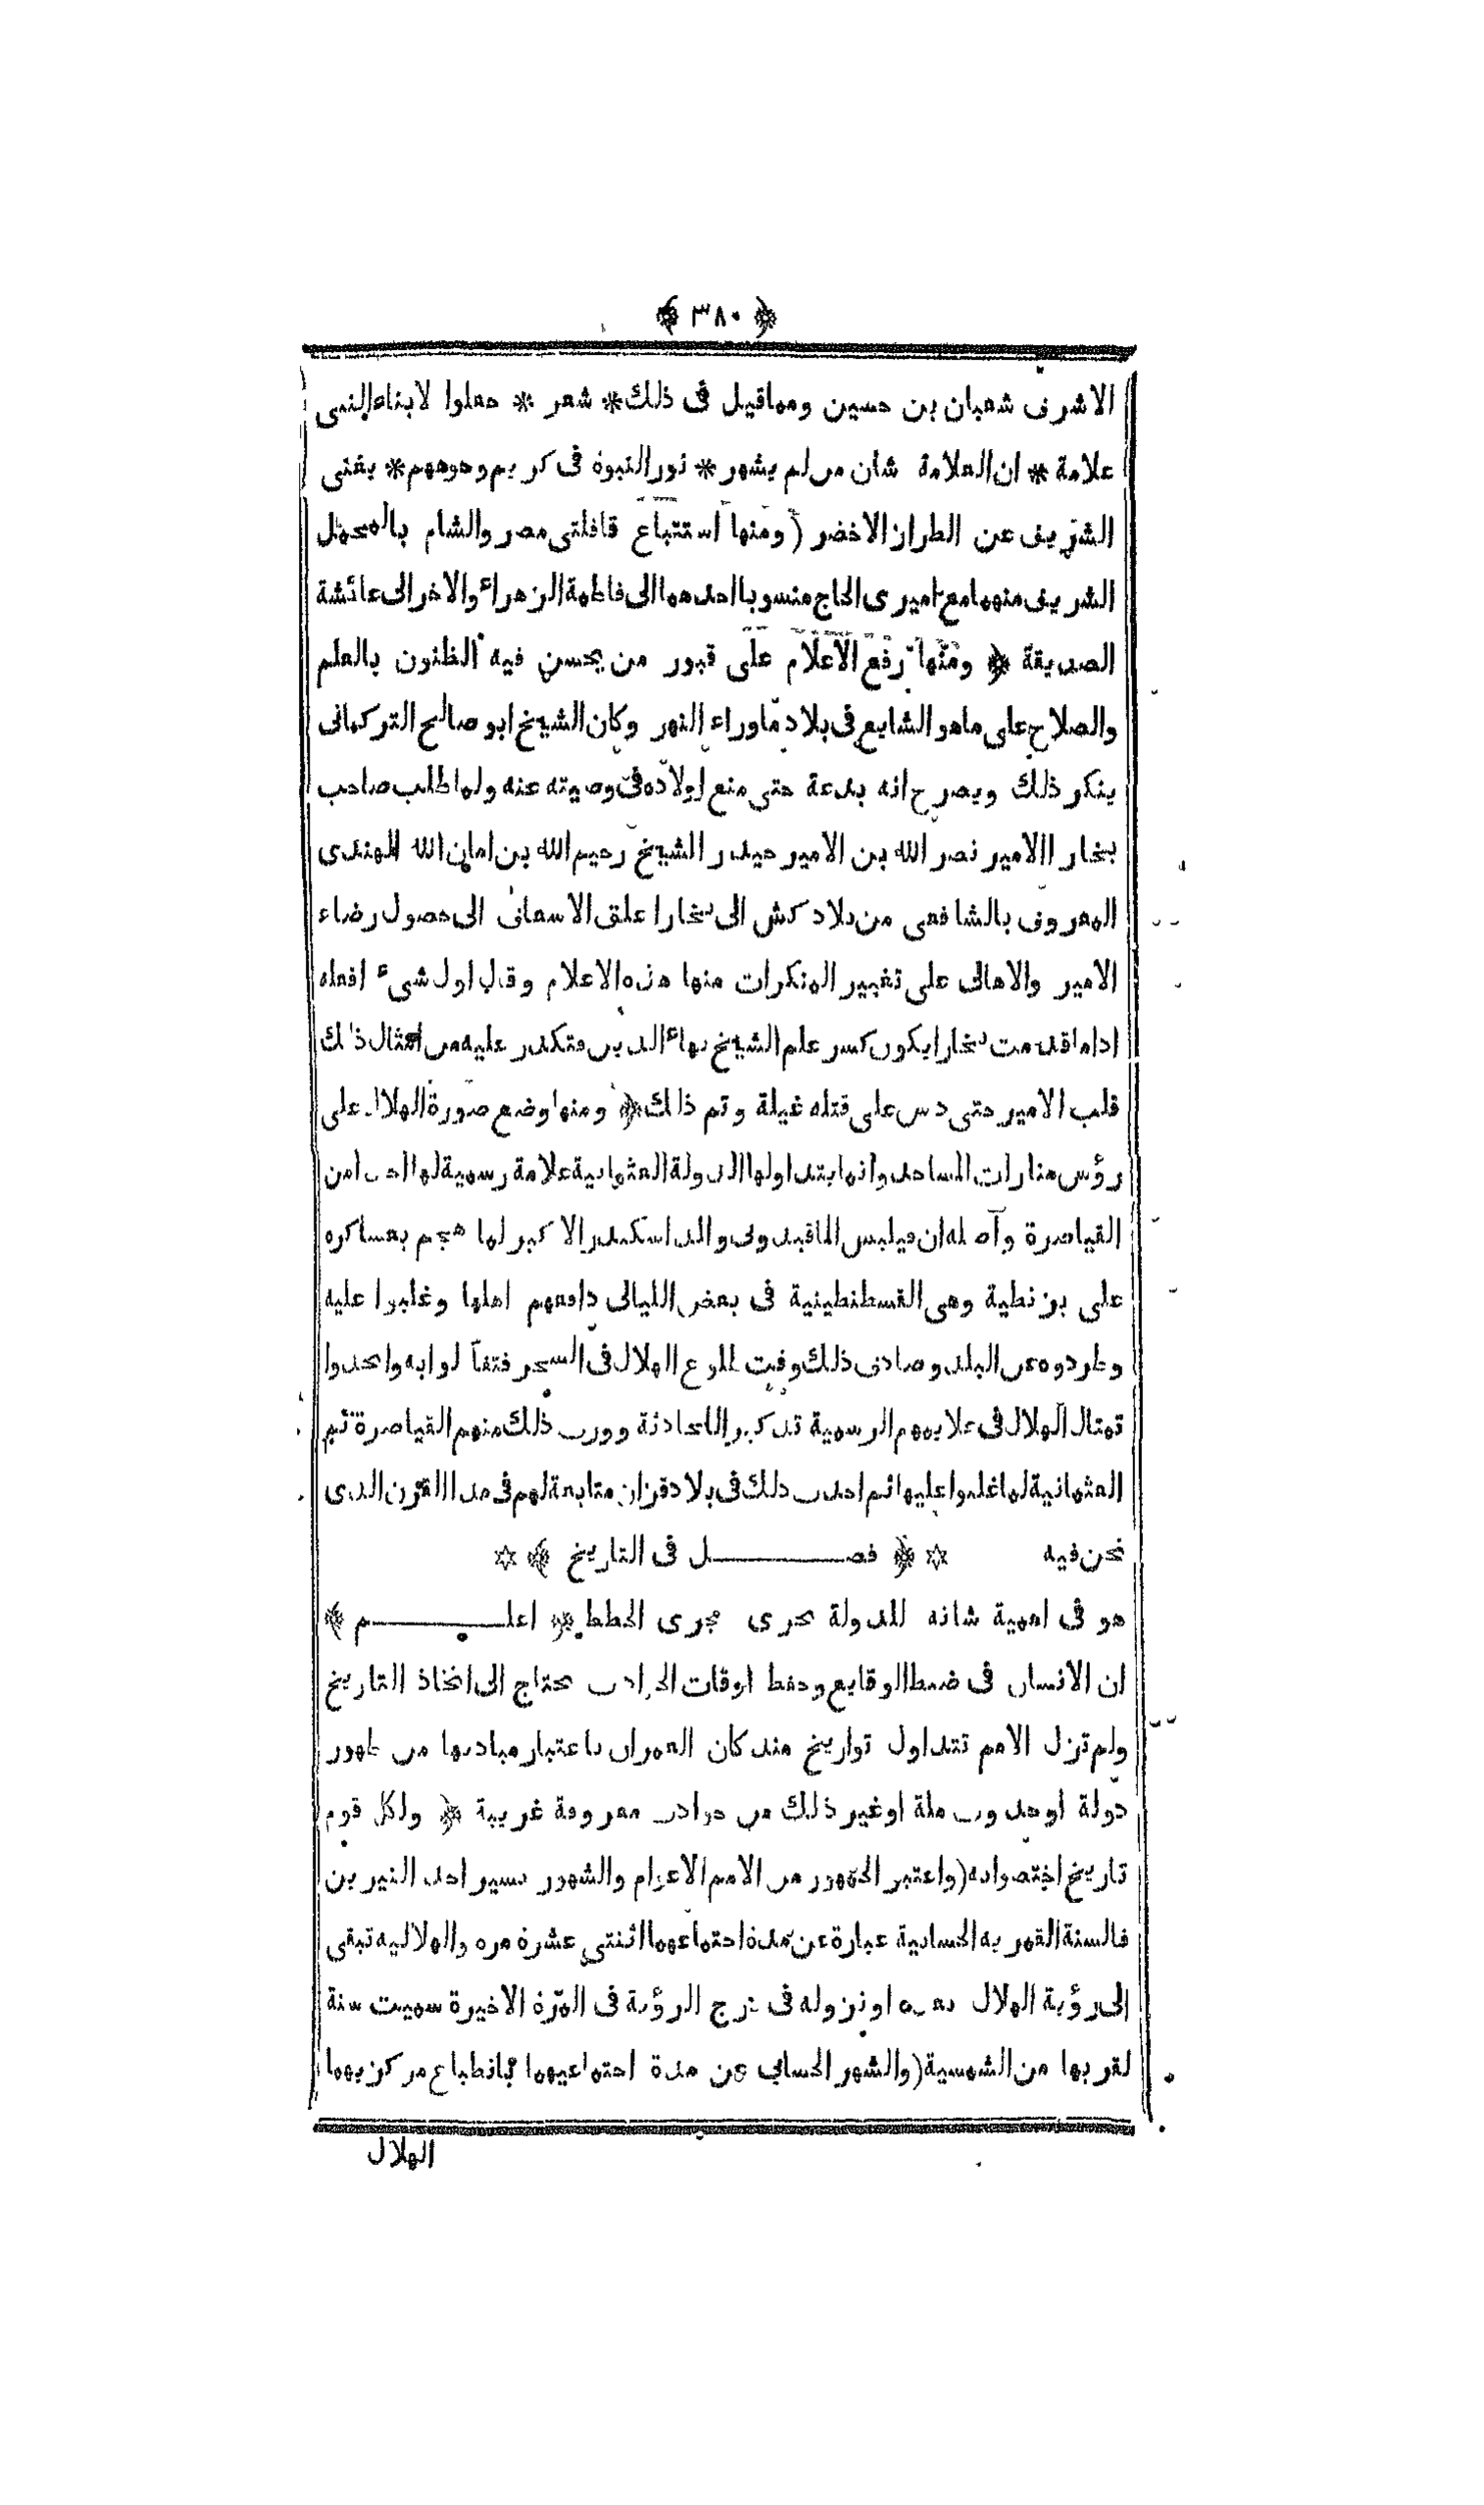 ﴿ ٣٨٠ ﴾
الاشرف شعبان بن حسين ومماقيل فى ذلك * شعر * جعلوا لابناء النبى
علامة * ان العلامة شان من لم يشهر * نور النبوة فى كريم وجوههم * يغنى
الشريف عن الطراز الاخضر ( ومنها استتباع قافلتى مصر والشام بالمحمل
الشريف منهما مع اميرى الحاج منسوبا احدهما الى فاطمة الزهراء والاخر الى عائشة
الصديقة ﴿ ومنها رفع الاعلام على قبور من يحسن فيه الظنون بالعلم
والصلاح على ماهو الشايع فى بلاد ماوراء النهر وكان الشيخ ابو صالح التركمانى
ينكر ذلك ويصرح انه بدعة حتى منع اولاده فى وصيته عنه ولما طلب صاحب
بخارا الامير نصر الله بن الامير حيدر الشيخ رحيم الله بن امان الله الهندى
المعروف بالشافعى من بلاد كش الى بخارا علق الاسعاف الى حصول رضاء
الامير والاهالى على تغيير المنكرات منها هذه الاعلام وقال اول شىء افعله
اذا ما قدمت بخارا يكون كسر علم الشيخ بهاء الدين فتكدر عليه من امثال ذلك
قلب الامير حتى دس على قتله غيلة وتم ذلك ﴿ ومنها وضع صورة الهلال على
رؤس منارات المساجد وانما بتداولها الدولة العثمانية علامة رسمية لها اخذا من
القياصرة وآصله ان فيلبس الماقيدونى والد اسكندر الاكبر لما هجم بعساكره
على بزنطية وهى القسطنطينية فى بعض الليالى دافعهم اهلها وغلبوا عليه
وطردوه عن البلد وصادف ذلك وقت طلوع الهلال فى السحر فتفاَ لوابه واتخذوا
تمثال الهلال فى علايمهم الرسمية تذكير اللحادثة وورث ذلك منهم القياصرة ثم
العثمانية لما غلبوا عليها ثم احدث ذلك فى بلاد قزان متابعة لهم فى هذا القرن الذى
نحن فيه ✡ ﴿ فصــــــل فى التاريخ ﴾ ✡
هو فى اهمية شانه للدولة يجرى مجرى الخطط ﴿ اعلـــــــم ﴾
ان الانسان فى ضبط الوقايع وحفظ اوقات الحوادث يحتاج الى اتخاذ التاريخ
ولم تزل الامم تتداول تواريخ منذ كان العمران باعتبار مباديها من ظهور
دولة اوحدوث ملة اوغير ذلك من حوادث معروفة غريبة ﴿ ولكل قوم
تاريخ اختصوابه ( واعتبر الجمهور من الامم الاعوام والشهور بسير احد النيرين
فالسنة القمرية الحسابية عبارة عن مدة اجتماعهما اثنتى عشرة مرة والهلالية تبقى
الى رؤية الهلال بعده اونزوله فى درج الرؤية فى المرّة الاخيرة سميت سنة
لقربها من الشمسية ( والشهر الحسابى عن مدة اجتماعيهما بانطباع مركزيهما
الهلال